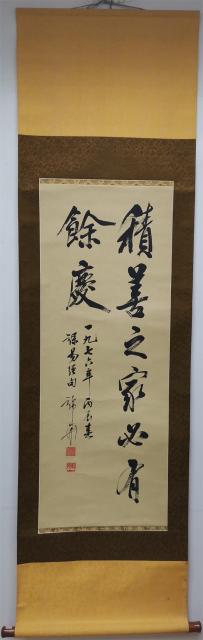 積善之家必有
餘慶
一九七六年 丙辰春
錄易經句